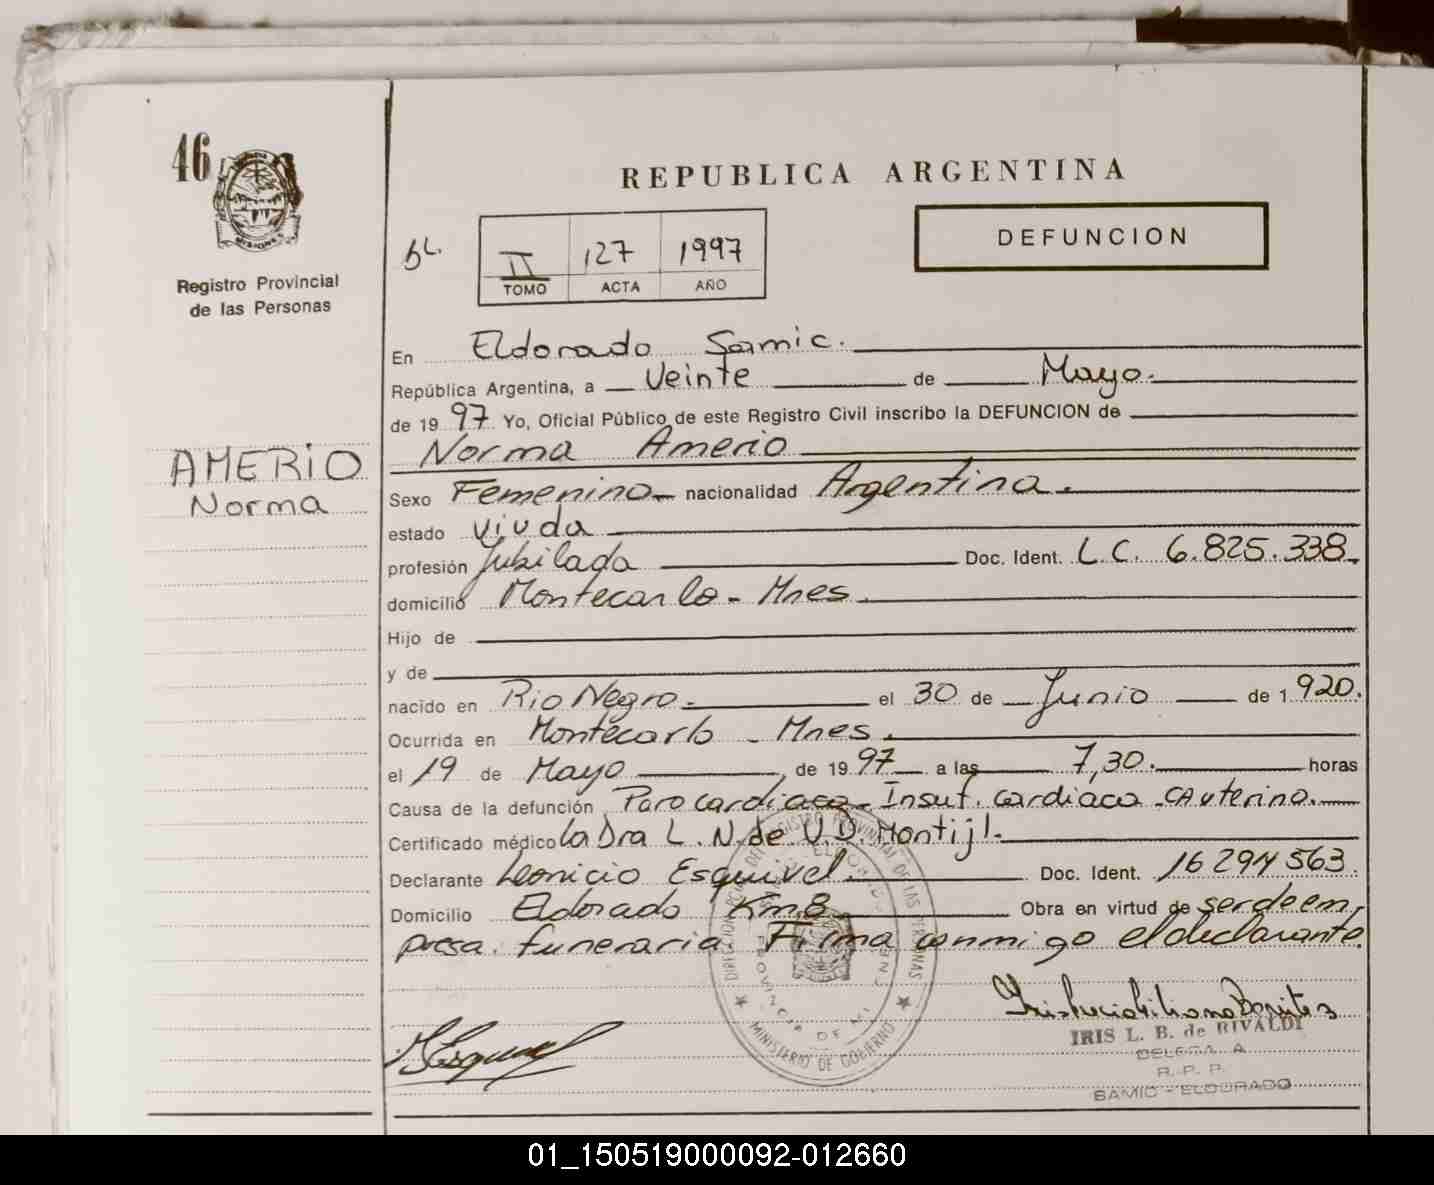 46
MISIONES
Registro Provincial
de las Personas
AMERIO
Norma
REPUBLICA ARGENTINA
DEFUNCION
bL. II 127 1997
TOMO ACTA AÑO
En Eldorado Samic.
República Argentina, a Veinte de Mayo.
de 19 97 Yo, Oficial Público de este Registro Civil inscribo la DEFUNCION de
Norma Amerio
Sexo Femenino nacionalidad Argentina.
estado viuda
profesión Jubilada Doc. Ident. L.C. 6.825.338.
domicilio Montecarlo - Mnes.
Hijo de
y de
nacido en Rio Negro. el 30 de Junio de 1.920.
Ocurrida en Montecarlo - Mnes.
el 19 de Mayo de 19 97 a las 7,30. horas
Causa de la defunción Paro cardiaco - Insuf. cardiaca - CA uterino.
Certificado médico la Dra L. N. de V. D. Montijl.
Declarante Leonicio Esquivel. Doc. Ident. 16 294 563.
Domicilio Eldorado Km. 8. Obra en virtud de ser de em-
presa funeraria. Firma conmigo el declarante.
DEL REGISTRO PROVINCIAL DE LAS PERSONAS
MINISTERIO DE GOBIERNO
IRIS L. B. de RIVALDI
R. P. P.
SAMIC - ELDORADO
01_150519000092-012660